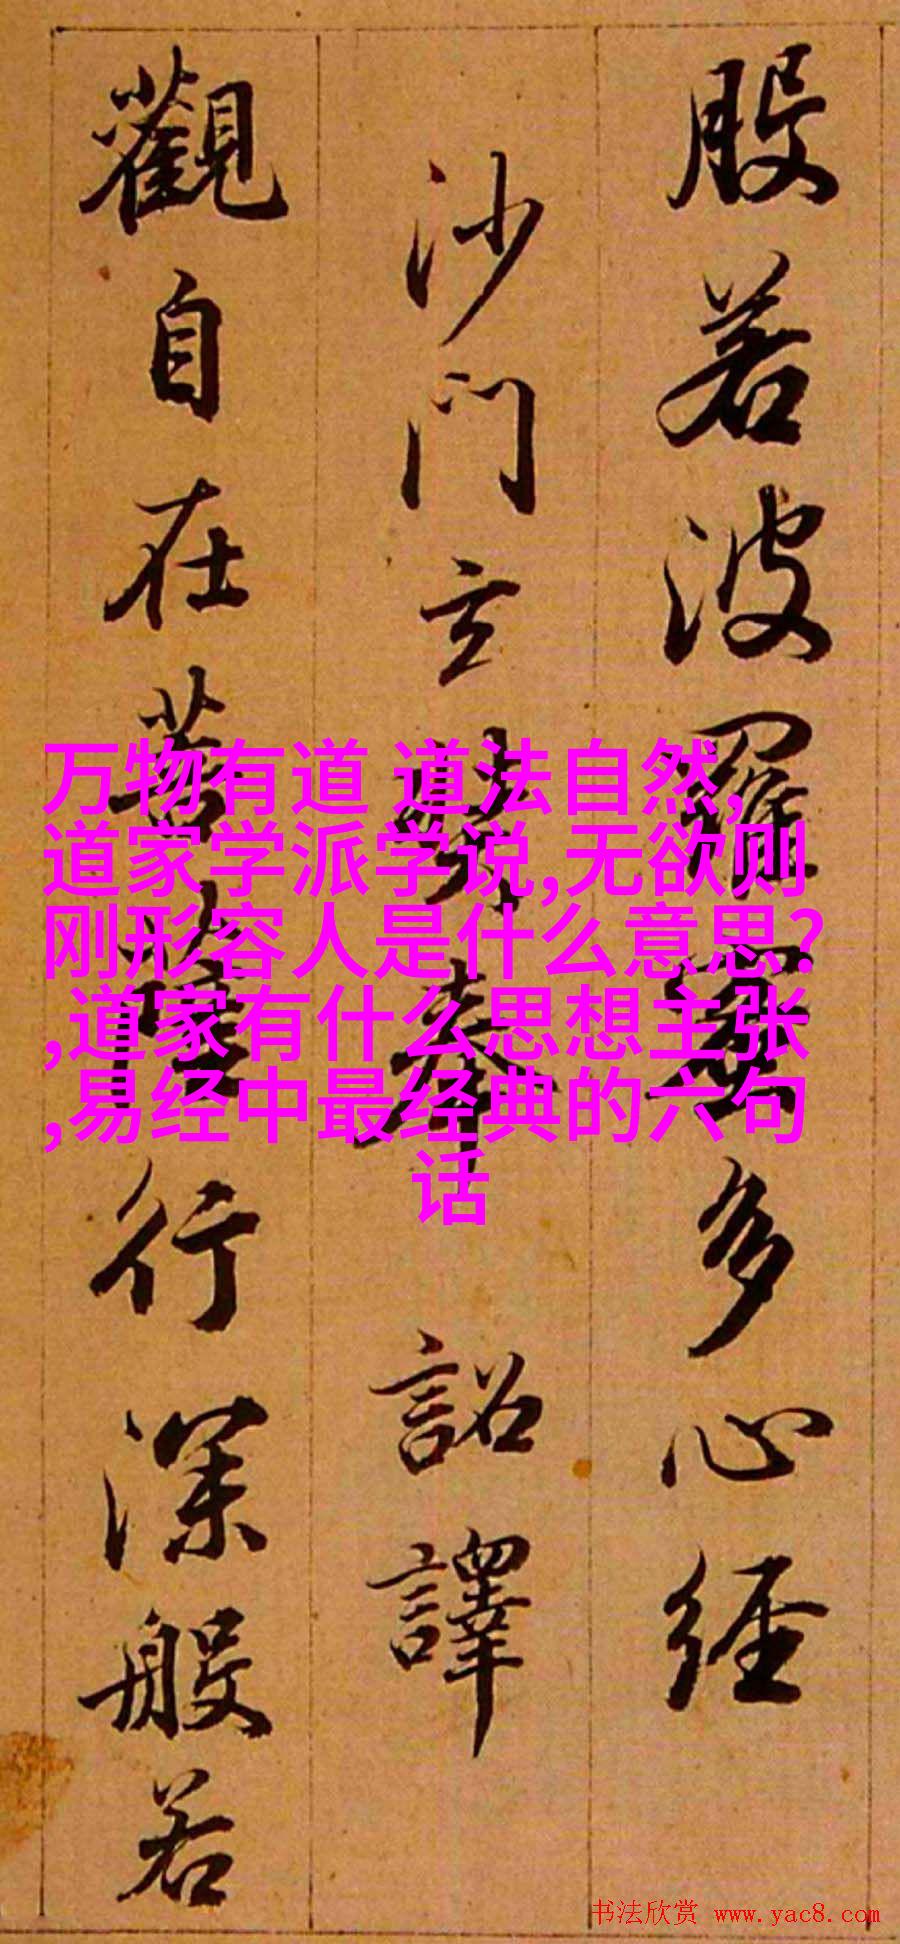 般若波羅蜜多心經
沙門玄奘奉 詔譯
觀自在菩薩行深般若
万物有道 道法自然,
道家学派学说,无欲则
刚形容人是什么意思?
,道家有什么思想主张
,易经中最经典的六句
话
书法欣赏 www.yac8.com